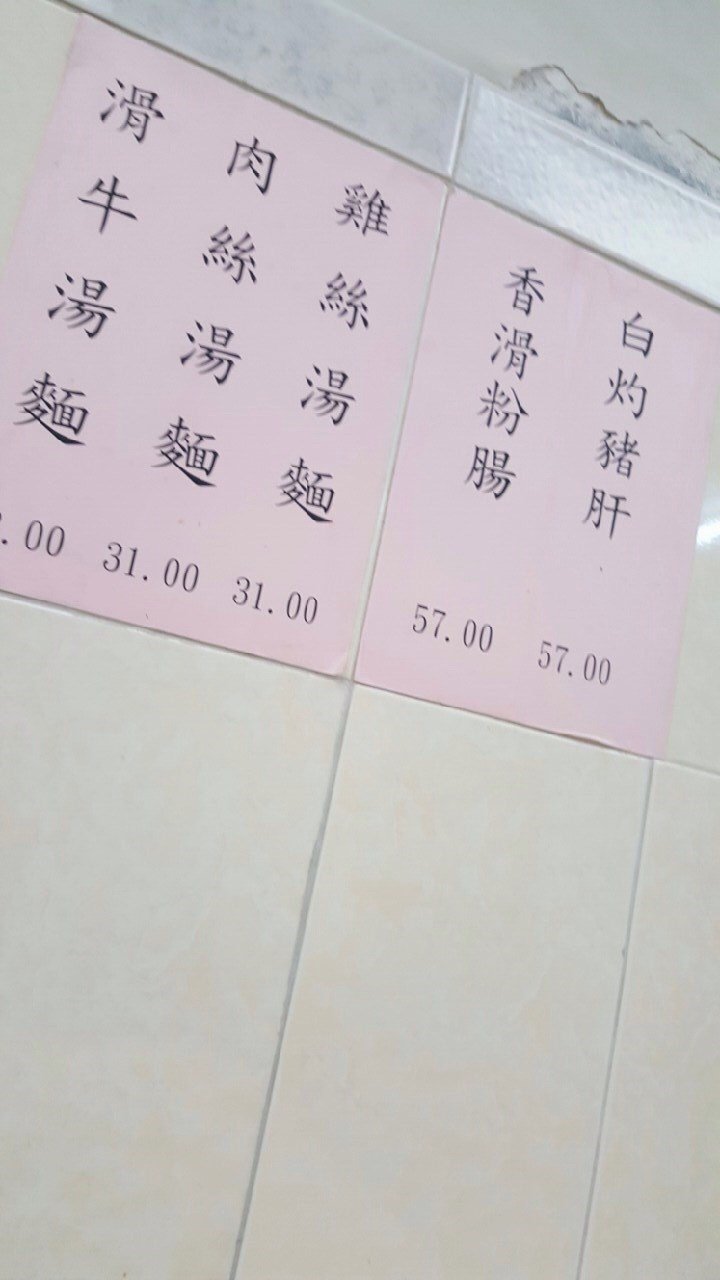 白灼豬肝
57.00
香滑粉腸
57.00
雞絲湯麵
31.00
肉絲湯麵
31.00
滑牛湯麵
.00